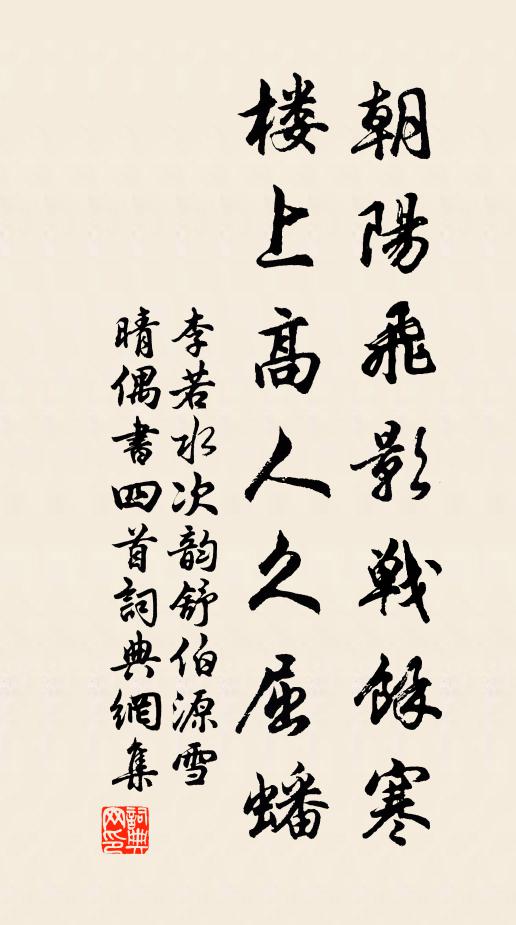 朝陽飛影戰餘寒
楼上高人久屈蟠
李若水次韵舒伯源雪
晴偶書四首詞典網集
詞典网印